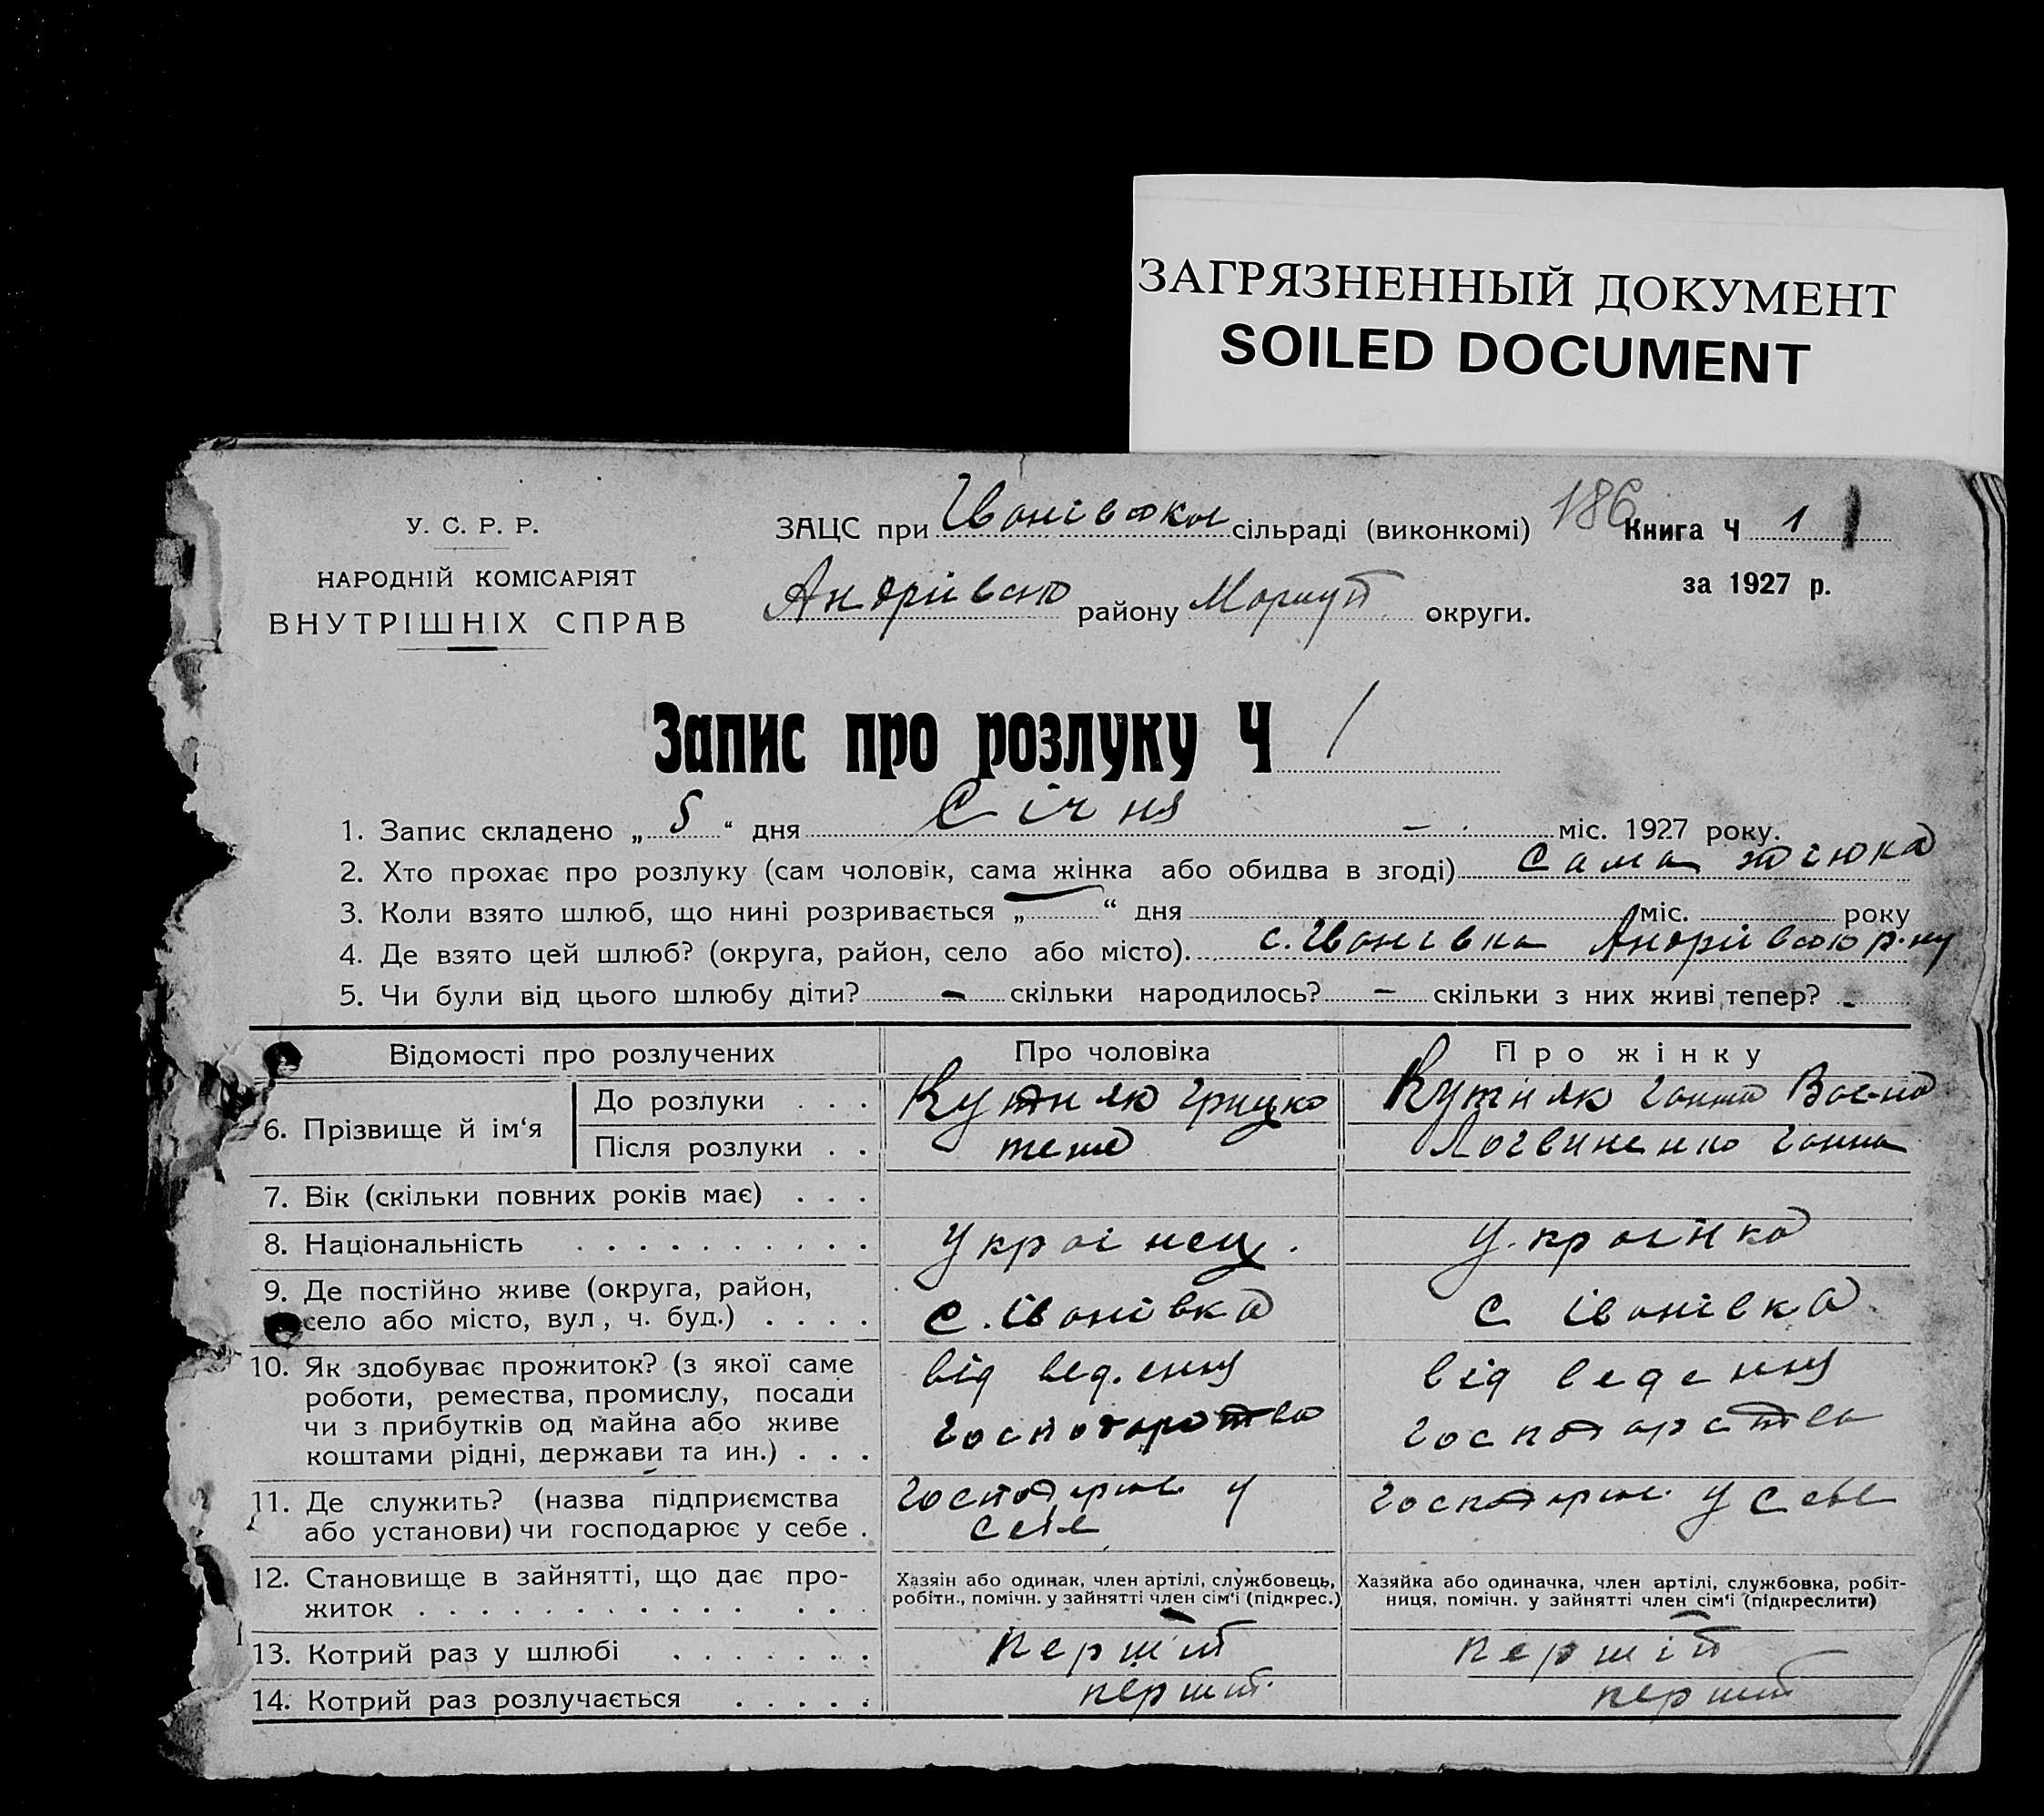 ЗАГРЯЗНЕННЫЙ ДОКУМЕНТ
SOILED DOCUMENT
У. С. Р. Р.
НАРОДНІЙ КОМІСАРІЯТ
ВНУТРІШНІХ СПРАВ
ЗАЦС при сільраді (виконкомі)
186
Книга Ч 1
району округи.
за 1927 р.
Запис про розлуку Ч 1
1. Запис складено „5“ дня Січня міс. 1927 року.
2. Хто прохає про розлуку (сам чоловік, сама жінка або обидва в згоді) Сама жінка
3. Коли взято шлюб, що нині розривається „ “ дня міс. року
4. Де взято цей шлюб? (округа, район, село або місто). с. Іванівка р-ну
5. Чи були від цього шлюбу діти? - скільки народилось? - скільки з них живі тепер? -
Відомості про розлучених Про чоловіка Про жінку
6. Прізвище й ім‘я
До розлуки . . . Кутняк Грицко Кутняк Ганна
Після розлуки . . теж Логвиненко Ганна
7. Вік (скільки повних років має) . . .
8. Національність . . . . . . . . . . Українец. Українка
9. Де постійно живе (округа, район,
село або місто, вул, ч. буд.) . . . . с. Іванівка с Іванівка
10. Як здобуває прожиток? (з якої саме
роботи, ремества, промислу, посади
чи з прибутків од майна або живе
коштами рідні, держави та ин.) . . .
від ведення
господарства
від ведення
господарства
11. Де служить? (назва підприємства
або установи) чи господарює у себе .
господарює у
себе
господарює у себе
12. Становище в зайнятті, що дає про-
житок . . . . . . . . . . . . . .
Хазяін або одинак, член артілі, службовець,
робітн., помічн. у зайнятті член сім‘ї (підкрес.)
Хазяйка або одиначка, член артілі, службовка, робіт-
ниця, помічн. у зайнятті член сім‘ї (підкреслити)
13. Котрий раз у шлюбі . . . . . . . перший першій
14. Котрий раз розлучається . . . . . перший перший